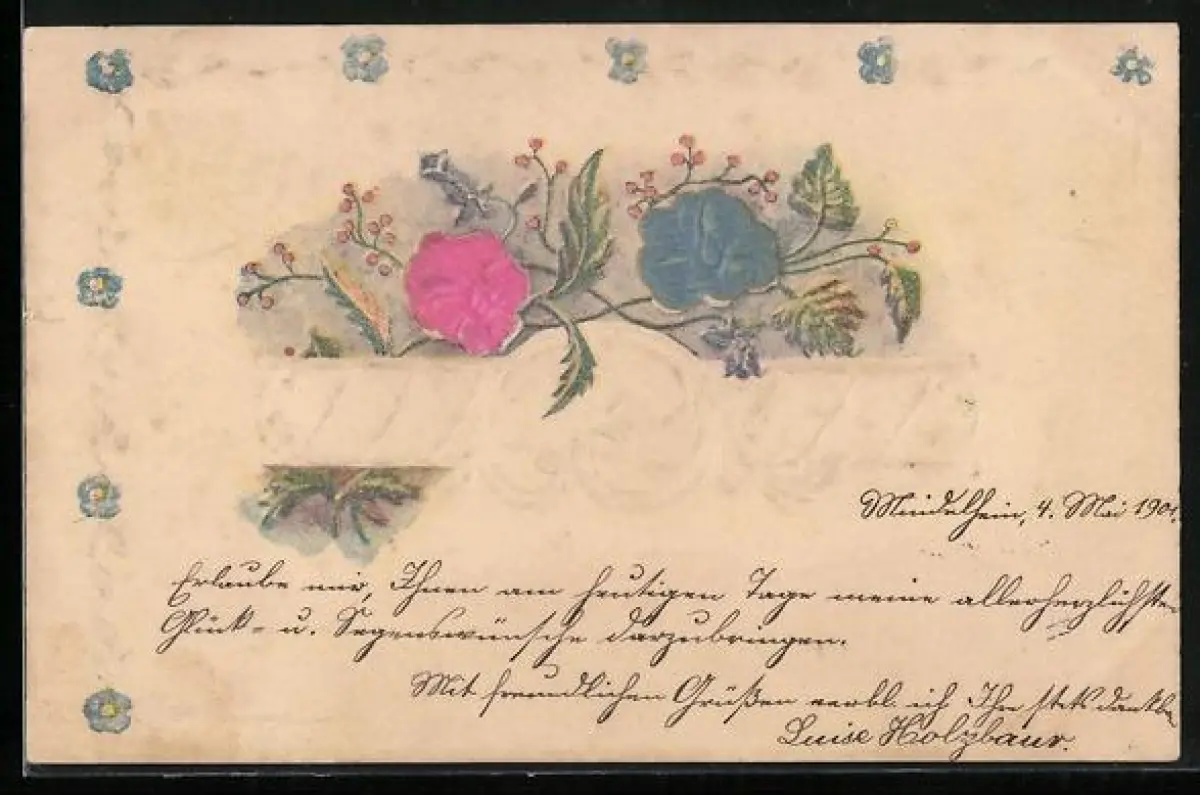 Mindelheim, 4. Mai 1901.
Erlaube mir, Ihnen am heutigen Tage meine allerherzlichsten
Glück- u. Segenswünsche darzubringen.
Mit freundlichen Grüßen verbl. ich Ihre stets dankb.
Luise Holzbaur.